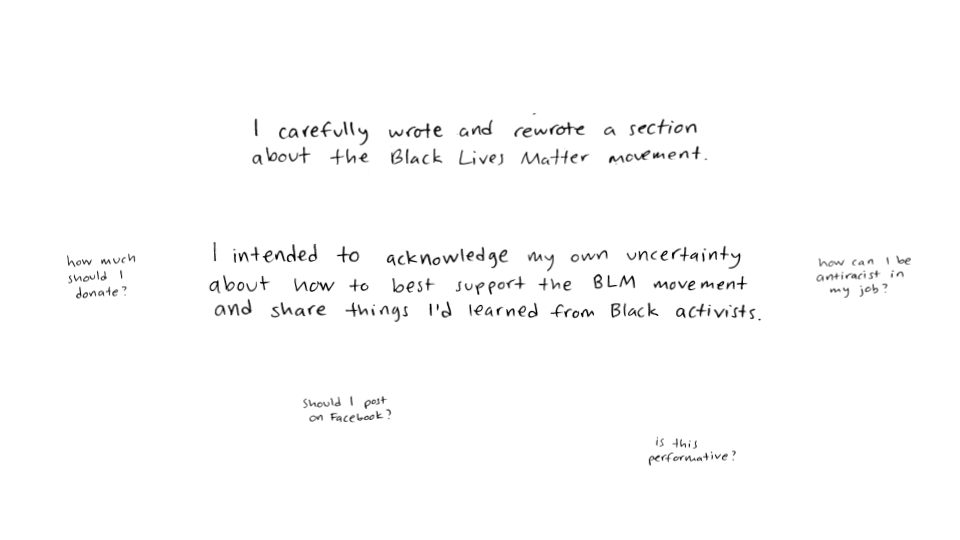 I carefully wrote and rewrote a section
about the Black Lives Matter movement.
how much
should I
donate?
I intended to acknowledge my own uncertainty
about how to best support the BLM movement
and share things I'd learned from Black activists.
how can I be
antiracist in
my job?
Should I post
on Facebook?
is this
performative?